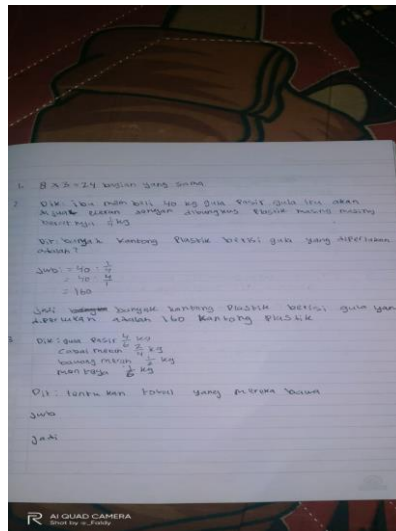 1. 8 x 3 = 24 bagian yang sama
2 Dik: ibu membeli 40 kg gula Pasir. gula itu akan
dijual eceran dengan dibungkus Plastik masing masing
beratnya 1/4 kg
Dit: banyak kantong Plastik berisi gula yang diperlukan
adalah?
Jwb: = 40 : 1/4
= 40 : 4/1
= 160
Jadi banyak kantong Plastik berisi gula yan
diperlukan adalah 160 kantong Plastik
3 Dik: gula Pasir 4/6 kg
Cabai merah 3/4 kg
bawang merah kg
mentega kg
Dit: tentukan total yang mereka bawa
Jwb
Jadi
AI QUAD CAMERA
Shot by